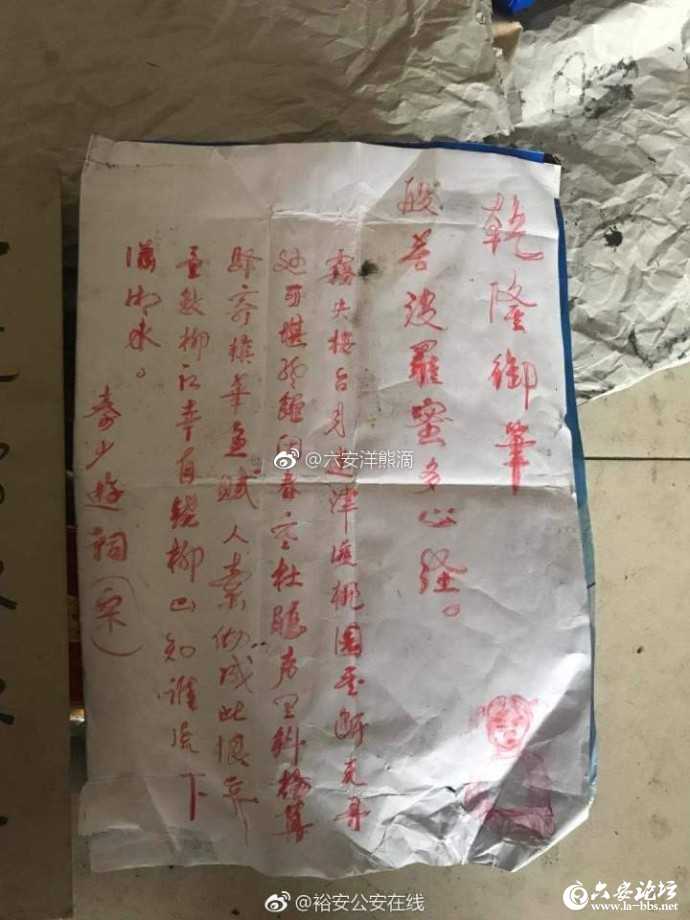 乾隆御筆
般若波羅蜜多心经。
霧失楼台月迷津渡桃園望断无寻
处可堪孤館闭春寒杜鵑声里斜杨暮
寄梅華魚賦人素 成此恨无
重数柳江幸自绕柳山为谁流下
潇湘水。
秦少遊詞(宋)
@六安洋熊滴
@裕安公安在线
六安论坛
www.la-bbs.net